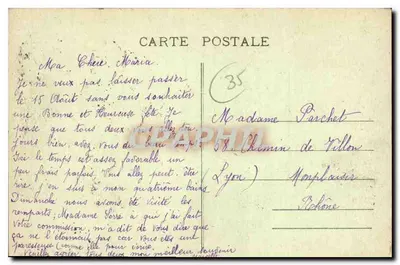 CARTE POSTALE
35
Ma Chère Maria
Je ne veux pas laisser passer
le 15 Août sans vous souhaiter
une Bonne et Heureuse fête. Je
pense que tous deux allez tou
jours bien, avez vous du beau
Ici le temps est assez favorable un
peu frais parfois. Vous allez peut être
en suis à mon quatrième bains
Dimanche nous avons été visité les
remparts, Madame à qui j'ai fait
votre commission, m'a dit de vous dire que
ça ne l'étonnait pas car vous êtes une
paresseuse comme elle pour
Veuillez agréer tous deux mon meilleur souvenir
Madame Parchet
58 Chemin de Villon
(Lyon) Monplaisir
Rhône